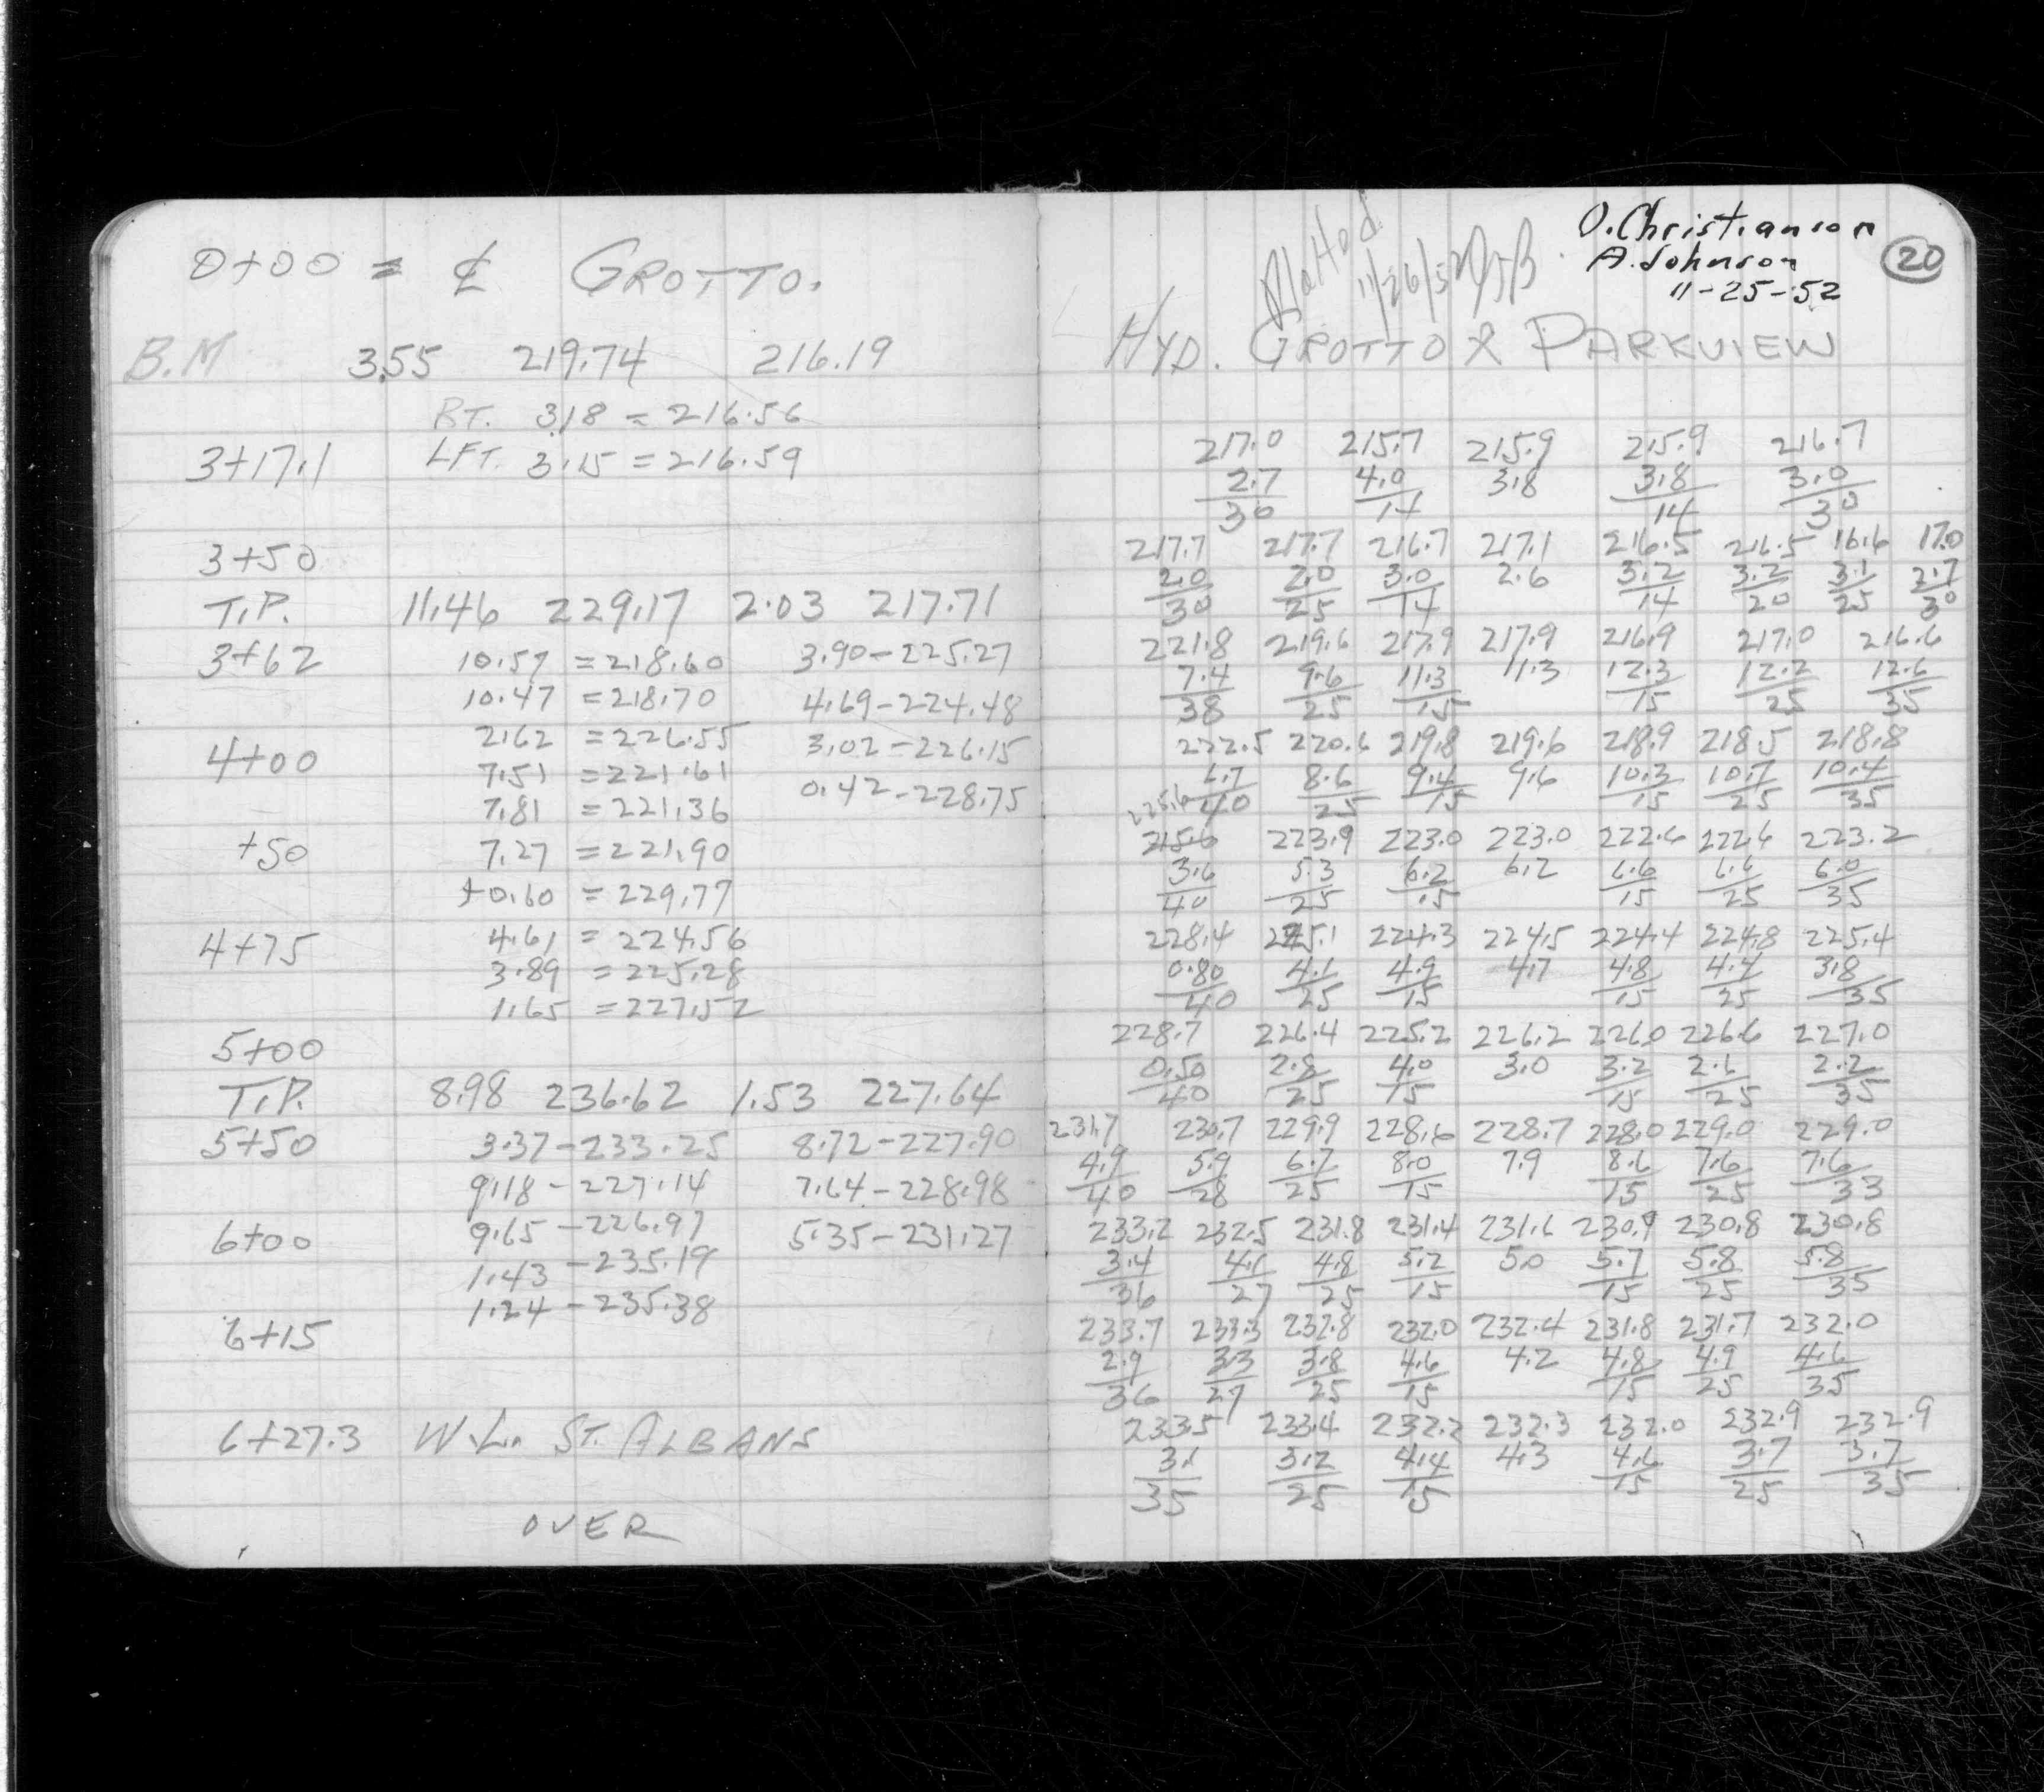 0+00 = ℄ GROTTO.
B.M 3.55 219.74 216.19
RT. 3.18 = 216.56
3+17.1 LFT. 3.15 = 216.59
3+50
T.P. 11.46 229.17 2.03 217.71
3+62 10.57 = 218.60 3.90 - 225.27
10.47 = 218.70 4.69 - 224.48
2.62 = 226.55 3.02 - 226.15
4+00 7.51 = 221.61 0.42 - 228.75
7.81 = 221.36
+50 7.27 = 221.90
+0.60 = 229.77
4+75 4.61 = 224.56
3.89 = 225.28
1.65 = 227.52
5+00
T.P. 8.98 236.62 1.53 227.64
5+50 3.37 - 233.25 8.72 - 227.90
9.18 - 227.14 7.64 - 228.98
6+00 9.65 - 226.97 5.35 - 231.27
1.43 - 235.19
1.24 - 235.38
6+15
6+27.3 W.L. ST. ALBANS
OVER
Plotted
11/26/52
O. Christianson
A. Johnson
11-25-52
20
HYD. GROTTO & PARKVIEW
217.0 215.7 215.9 215.9 216.7
2.7 4.0 3.8 3.8 3.0
30 14 14 30
217.7 217.7 216.7 217.1 216.5 216.5 16.6 17.0
2.0 2.0 3.0 2.6 3.2 3.2 3.1 2.7
30 25 14 14 20 25 30
221.8 219.6 217.9 217.9 216.9 217.0 216.6
7.4 9.6 11.3 11.3 12.3 12.2 12.6
38 25 15 15 25 35
222.5 220.6 219.8 219.6 218.9 218.5 218.8
6.7 8.6 9.4 9.6 10.3 10.7 10.4
40 25 15 15 25 35
225.6
215.6 223.9 223.0 223.0 222.6 222.6 223.2
3.6 5.3 6.2 6.2 6.6 6.6 6.0
40 25 15 15 25 35
228.4 225.1 224.3 224.5 224.4 224.8 225.4
0.80 4.1 4.9 4.7 4.8 4.4 3.8
40 25 15 15 25 35
228.7 226.4 225.2 226.2 226.0 226.6 227.0
0.50 2.8 4.0 3.0 3.2 2.6 2.2
40 25 15 15 25 35
231.7 230.7 229.9 228.6 228.7 228.0 229.0 229.0
4.9 5.9 6.7 8.0 7.9 8.6 7.6 7.6
40 28 25 15 15 25 33
233.2 232.5 231.8 231.4 231.6 230.9 230.8 230.8
3.4 4.1 4.8 5.2 5.0 5.7 5.8 5.8
36 27 25 15 15 25 35
233.7 233.3 232.8 232.0 232.4 231.8 231.7 232.0
2.9 3.3 3.8 4.6 4.2 4.8 4.9 4.6
36 27 25 15 15 25 35
233.5 233.4 232.2 232.3 232.0 232.9 232.9
3.1 3.2 4.4 4.3 4.6 3.7 3.7
35 25 15 15 25 35